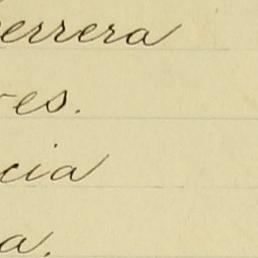 errera
es.
cia
a.